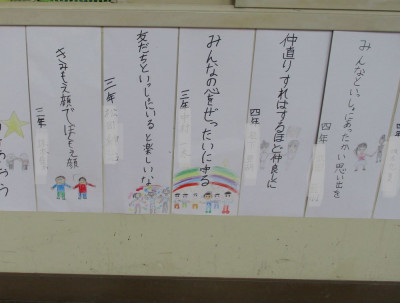 みんなといっしょにあったかい思い出を
四年
仲直りすればするほど仲良しに
四年
みんなの心をぜったいにまもる
三年
友だちといっしょにいると楽しいな
三年
きみもえ顔でぼくもえ顔
三年